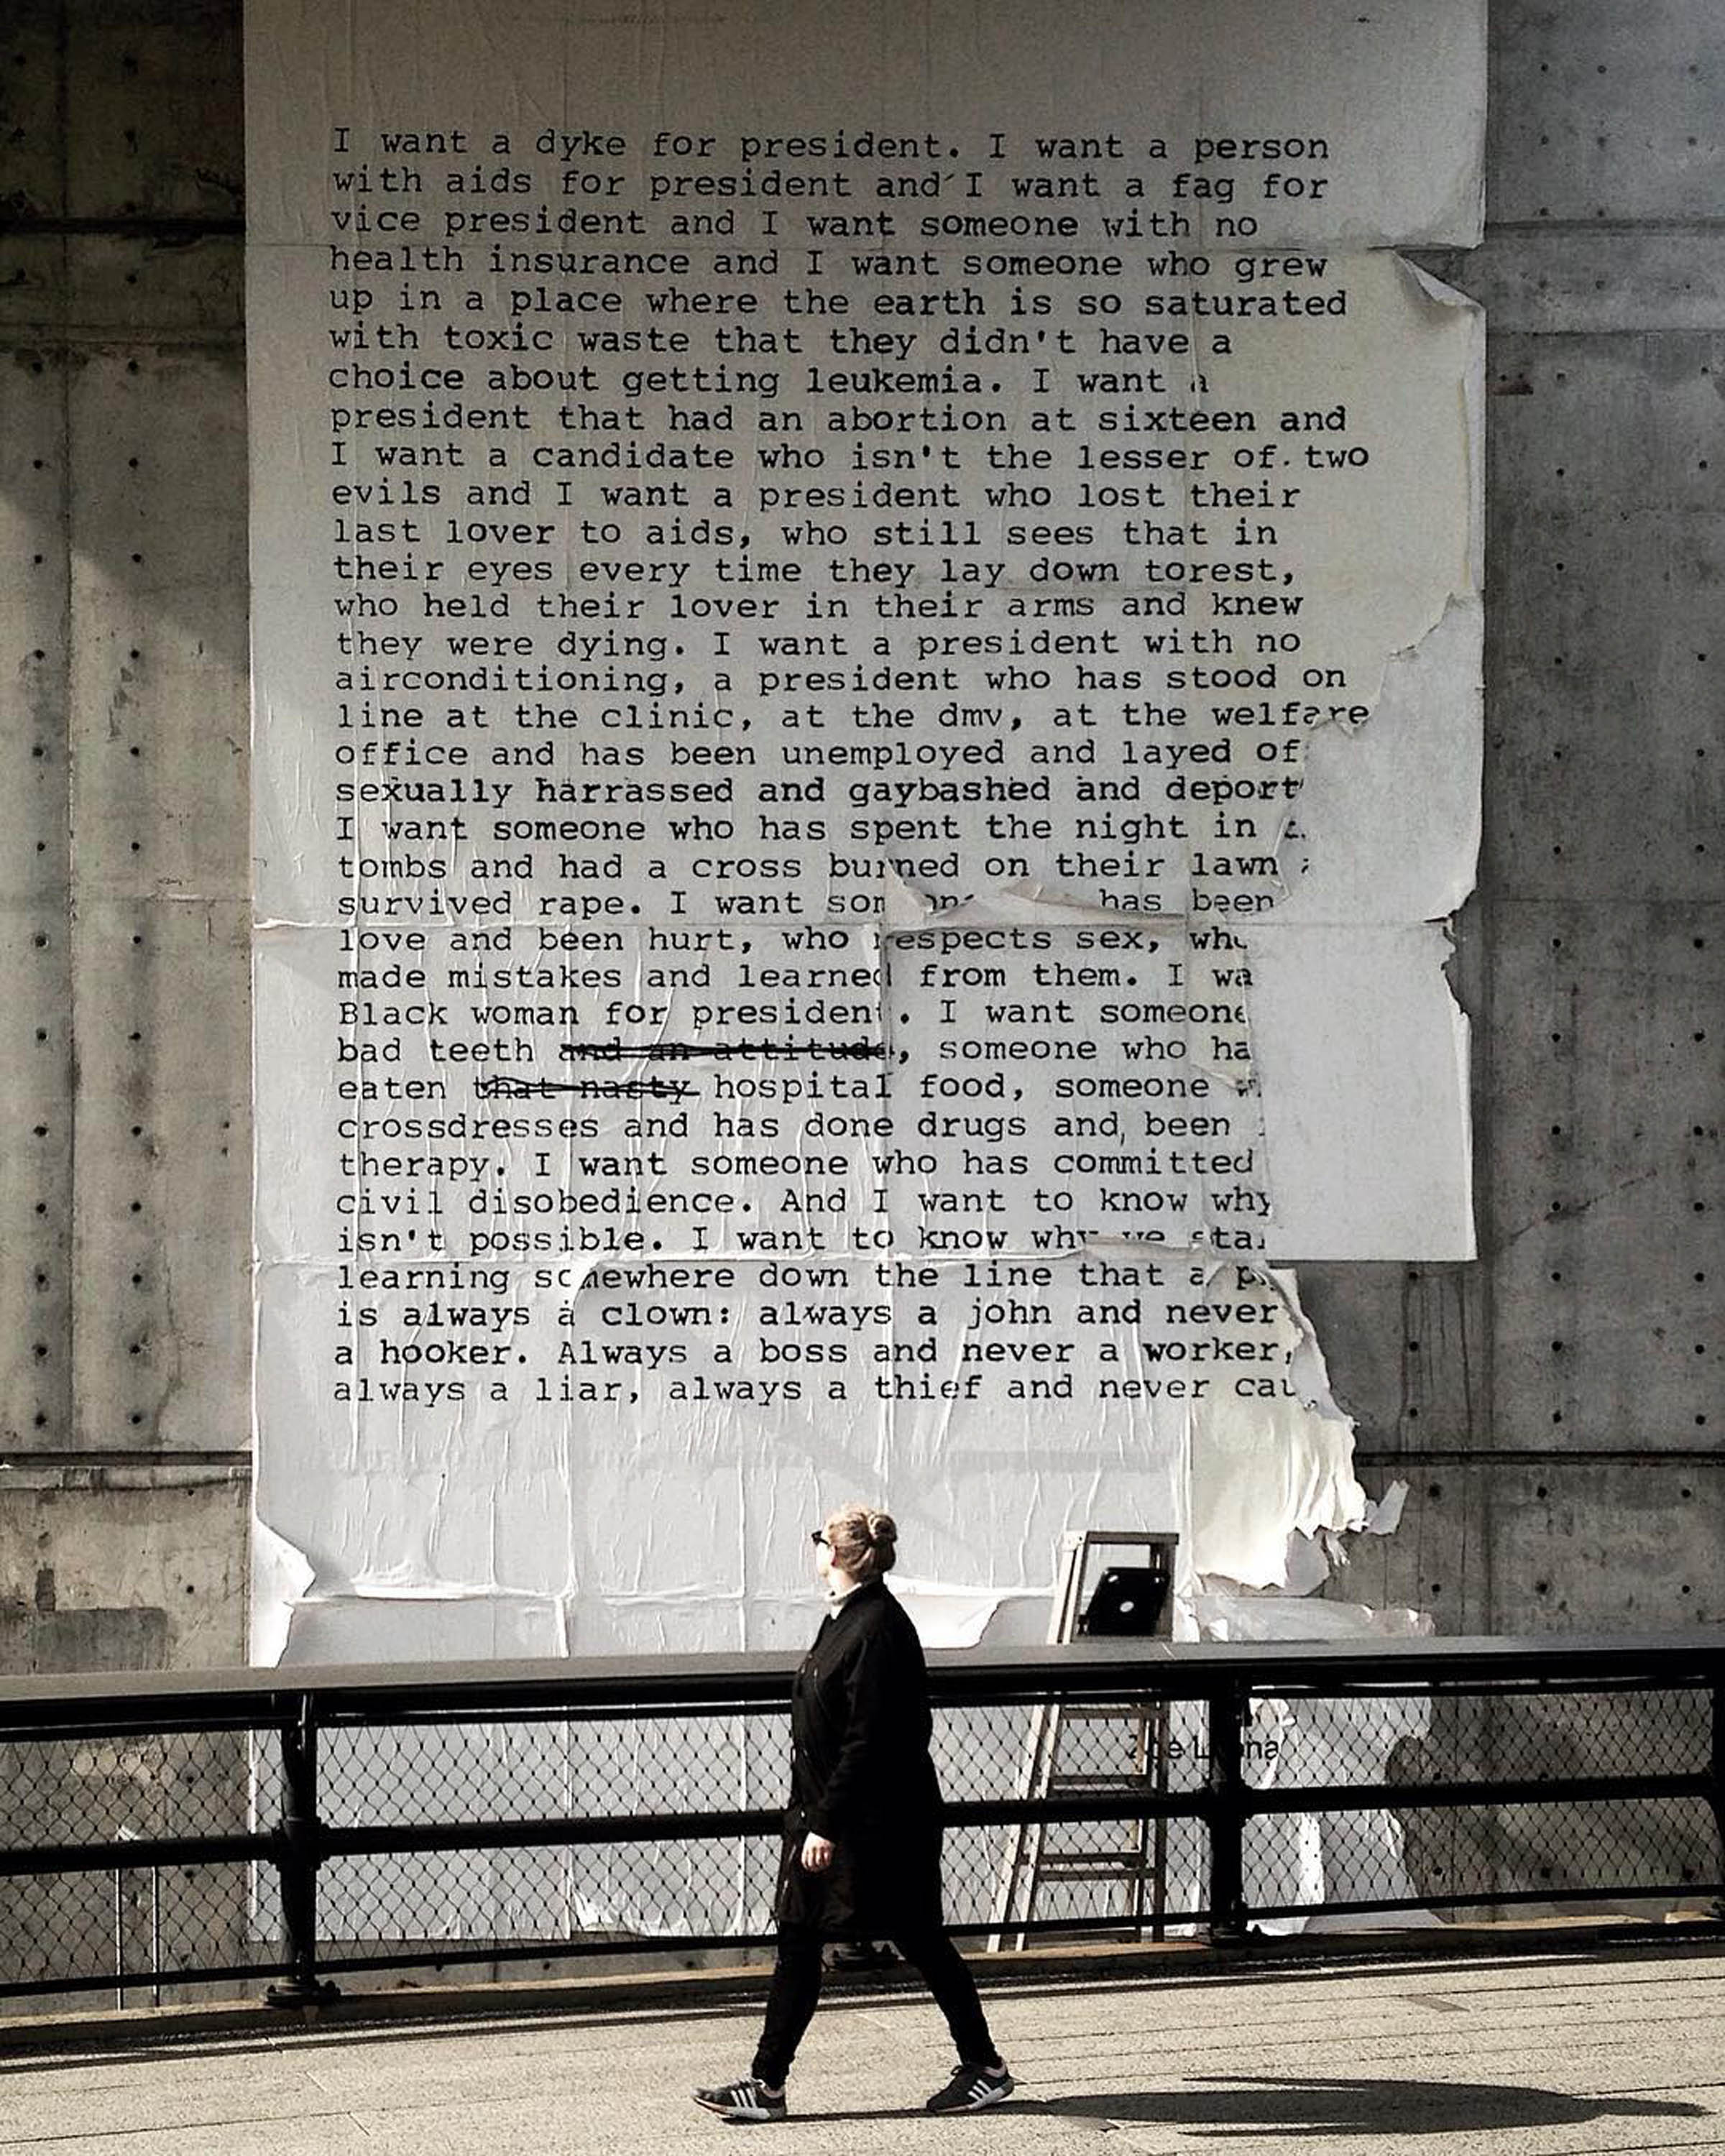 I want a dyke for president. I want a person
with aids for president and I want a fag for
vice president and I want someone with no
health insurance and I want someone who grew
up in a place where the earth is so saturated
with toxic waste that they didn't have a
choice about getting leukemia. I want a
president that had an abortion at sixteen and
I want a candidate who isn't the lesser of two
evils and I want a president who lost their
last lover to aids, who still sees that in
their eyes every time they lay down torest,
who held their lover in their arms and knew
they were dying. I want a president with no
airconditioning, a president who has stood on
line at the clinic, at the dmv, at the welfare
office and has been unemployed and layed
sexually harrassed and gaybashed and
I want someone who has spent the night in
tombs and had a cross burned on their lawn
survived rape. I want has been
love and been hurt, who respects sex,
made mistakes and learned from them. I
Black woman for president. I want someone
bad teeth and an attitude, someone who
eaten that nasty hospital food, someone
crossdresses and has done drugs and been
therapy. I want someone who has committed
civil disobedience. And I want to know why
isn't possible. I want to know why we
learning somewhere down the line that a
is always a clown: always a john and never
a hooker. Always a boss and never a worker,
always a liar, always a thief and never